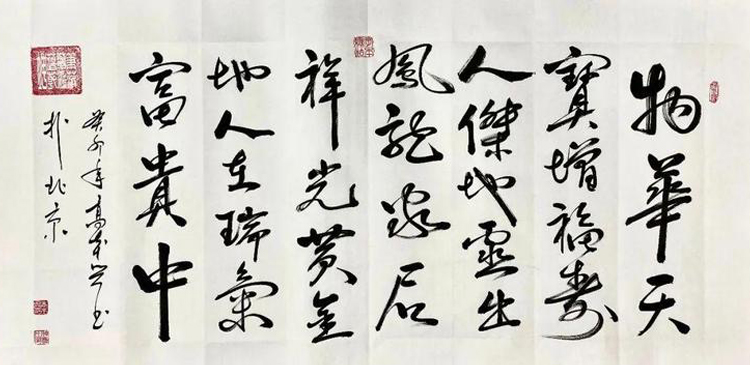 物華天
寶增福壽
人傑地靈出
鳳龍家居
祥光黃金
地人在瑞氣
富貴中
癸卯年高本书
於北京